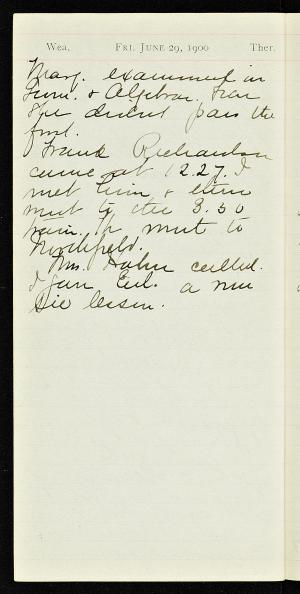 Wea. Fri. June 29, 1900 Ther.
Marj. examined in
& Algebra, fear
she didn't pass the
first.
Frank Richardson
came at 12.27. I
met him & then
went to the 3.50
train. He went to
Northfield.
Mrs. Hahn called.
I gave a new
lesson.